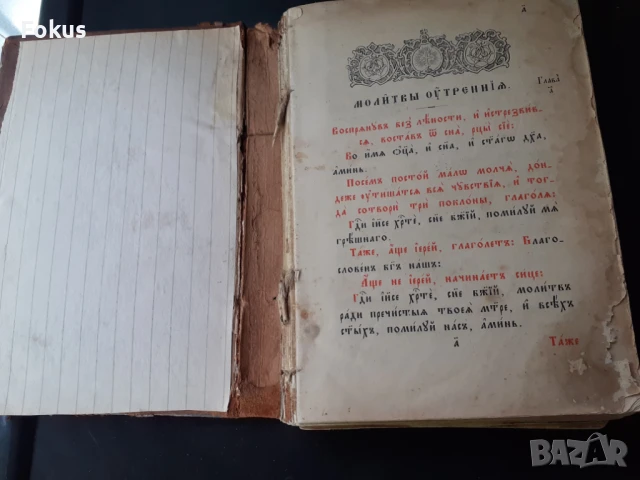 Fokus
а҃
МОЛИ́ТВЫ ОУ҆́ТРЕННІѦ.
Глава̀
Воспрѧ́нꙋвъ без̾ лѣ́ности, и҆ и҆стрезви́в-
сѧ, воста́въ ѿ сна̀, рцы̀ сїѐ:
Во и҆́мѧ ѻ҆ц҃а̀, и҆ сн҃а, и҆ ст҃а́гѡ дх҃а,
а҆ми́нь.
Посе́мъ посто́й ма́лѡ молча̀, до́н-
деже ᲂу҆тиша́тсѧ всѧ̑ чꙋ̑вствїѧ, и҆ тог-
да̀ сотворѝ трѝ покло́ны, глаго́лѧ:
Гдⷭ҇и і҆и҃се хрⷭ҇тѐ, сн҃е бж҃їй, поми́лꙋй мѧ̀
грѣ́шнаго.
Та́же, а҆́ще і҆ере́й, глаго́летъ: Благо-
слове́нъ бг҃ъ на́шъ:
А҆́ще не і҆ере́й, начина́етъ си́це:
Гдⷭ҇и і҆и҃се хрⷭ҇тѐ, сн҃е бж҃їй, моли́твъ
ра́ди пречⷭ҇тыѧ твоеѧ̀ мт҃ре, и҆ всѣ́хъ
ст҃ы́хъ, поми́лꙋй на́съ, а҆ми́нь.
а҃
Та́же
BAZAR